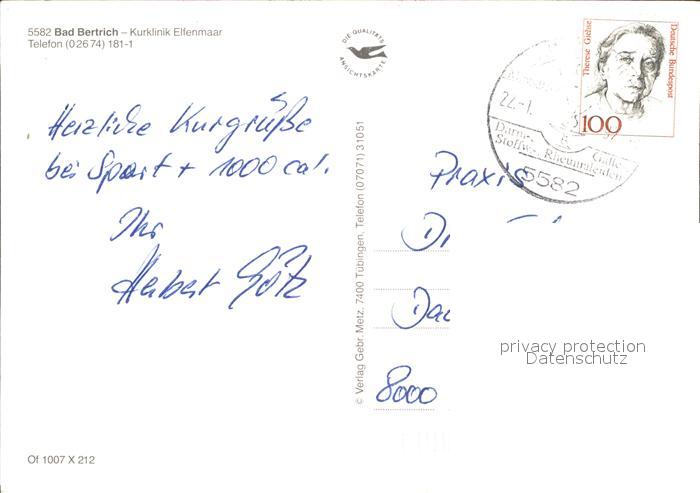 5582 Bad Bertrich – Kurklinik Elfenmaar
Telefon (0 26 74) 181-1
DIE QUALITÄTS
ANSICHTSKARTE
Herzliche Kurgrüße
bei Sport + 1000 cal.
Ihr
Herbert Götz
© Verlag Gebr. Metz, 7400 Tübingen, Telefon (07071) 31051
Of 1007 X 212
Therese Giehse
Deutsche Bundespost
100
Darm- Galle-
Stoffw. Rheumaleiden
5582
Praxis
D
8000
privacy protection
Datenschutz